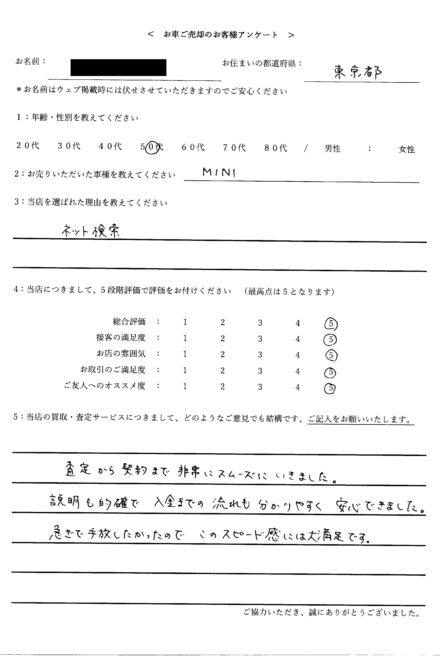 ＜ お車ご売却のお客様アンケート ＞
お名前： お住まいの都道府県： 東京都
＊お名前はウェブ掲載時には伏せさせていただきますのでご安心ください
1：年齢・性別を教えてください
20代 30代 40代 50代 60代 70代 80代 / 男性 ： 女性
2：お売りいただいた車種を教えてください MINI
3：当店を選ばれた理由を教えてください
ネット検索
4：当店につきまして、5段階評価で評価をお付けください （最高点は5となります）
総合評価 ： 1 2 3 4 5
接客の満足度 ： 1 2 3 4 5
お店の雰囲気 ： 1 2 3 4 5
お取引のご満足度 ： 1 2 3 4 5
ご友人へのオススメ度 ： 1 2 3 4 5
5：当店の買取・査定サービスにつきまして、どのようなご意見でも結構です、ご記入をお願いいたします。
査定から契約まで非常にスムーズにいきました。
説明も的確で 入金までの流れも分かりやすく 安心できました。
急ぎで手放したかったので このスピード感には大満足です。
ご協力いただき、誠にありがとうございました。